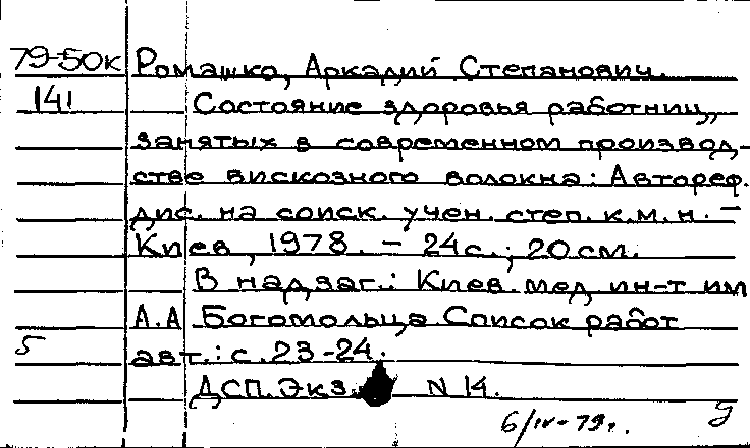 79-50к Ромашко, Аркадий Степанович.
141 Состояние здоровья работниц,
занятых в современном производ-
стве вискозного волокна: Автореф.
дис. на соиск. учен. степ. к.м.н. –
Киев, 1978. – 24 с.; 20 см.
В надзаг.: Киев. мед. ин-т им
А.А Богомольца. Список работ
5 авт.: с. 23-24.
ДСП. Экз. N 14.
6/IV-79г.